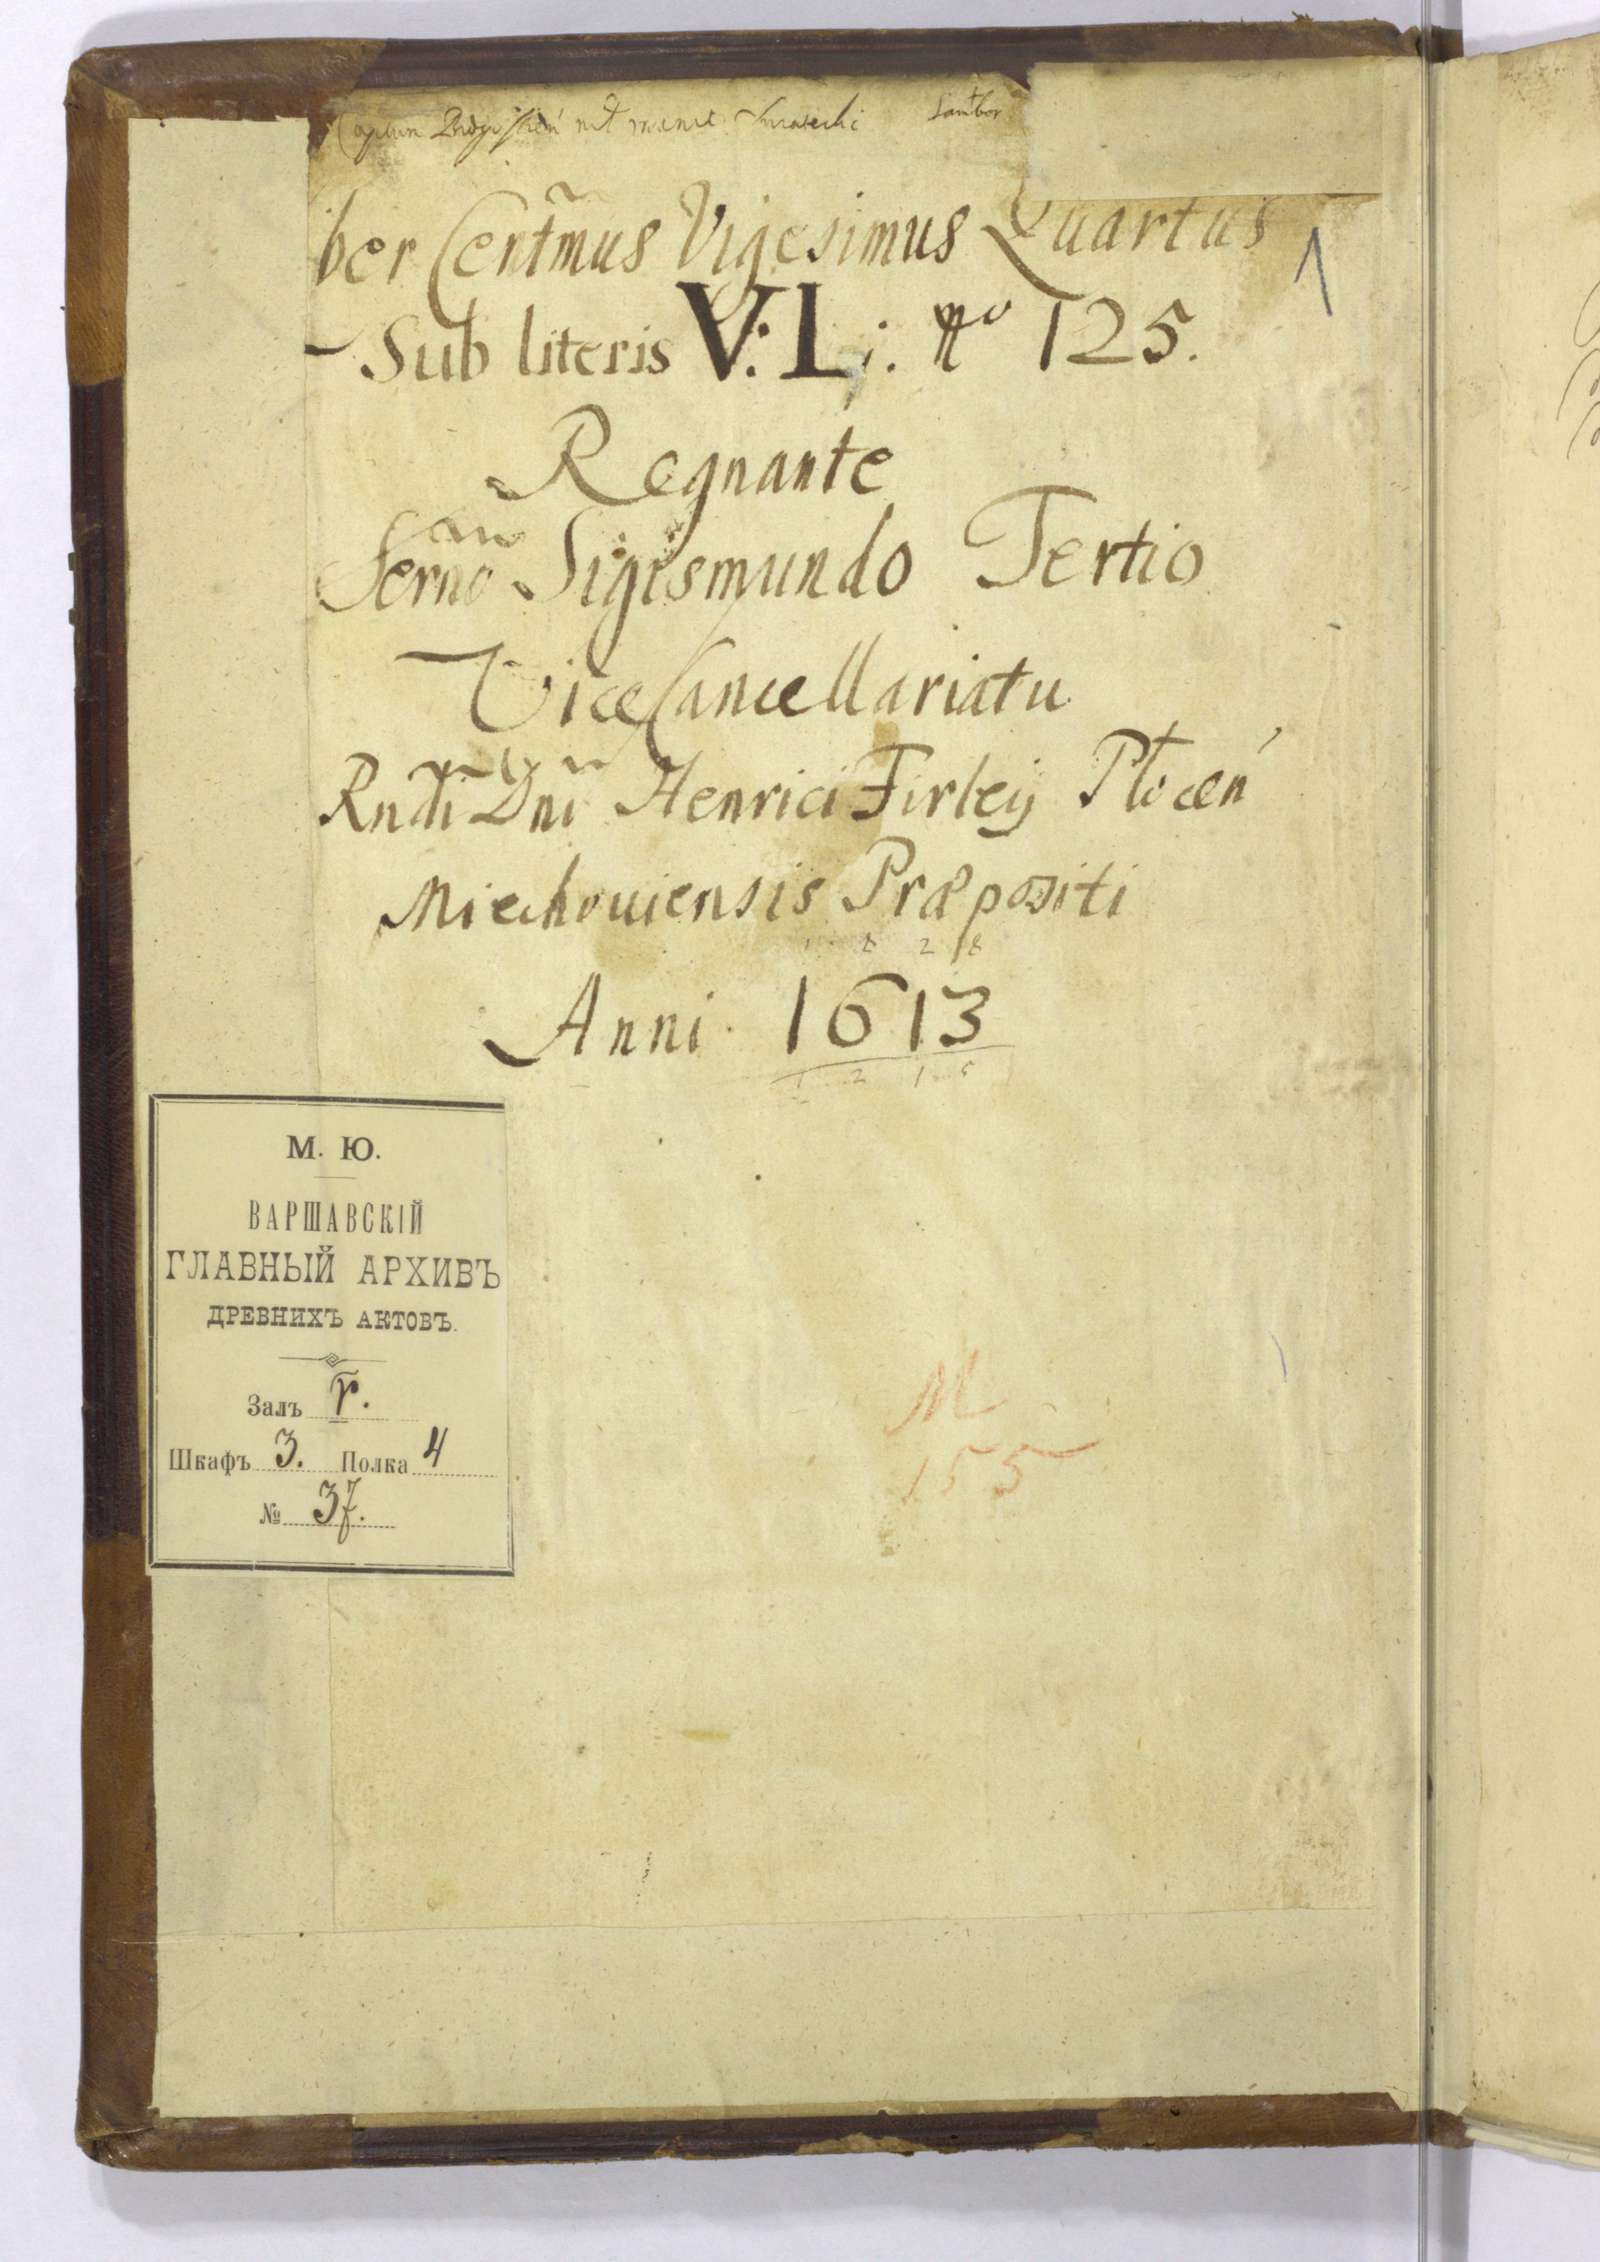 ber Cent̃mus Vigesimus Quartus
1
Sub literis V: L; No 125.
Regnante
Sermo Sigismundo Tertio
ViceCancellariatu
Rndi Dni Henrici Firleij Płocen
Miechouiensis Præpositi
1 8 2 8
Anni 1613
1 2 1 5
М. Ю.
ВАРШАВСКІЙ
ГЛАВНЫЙ АРХИВЪ
ДРЕВНИХЪ АКТОВЪ.
Залъ
Шкафъ 3. Полка 4
№ 37.
M
155